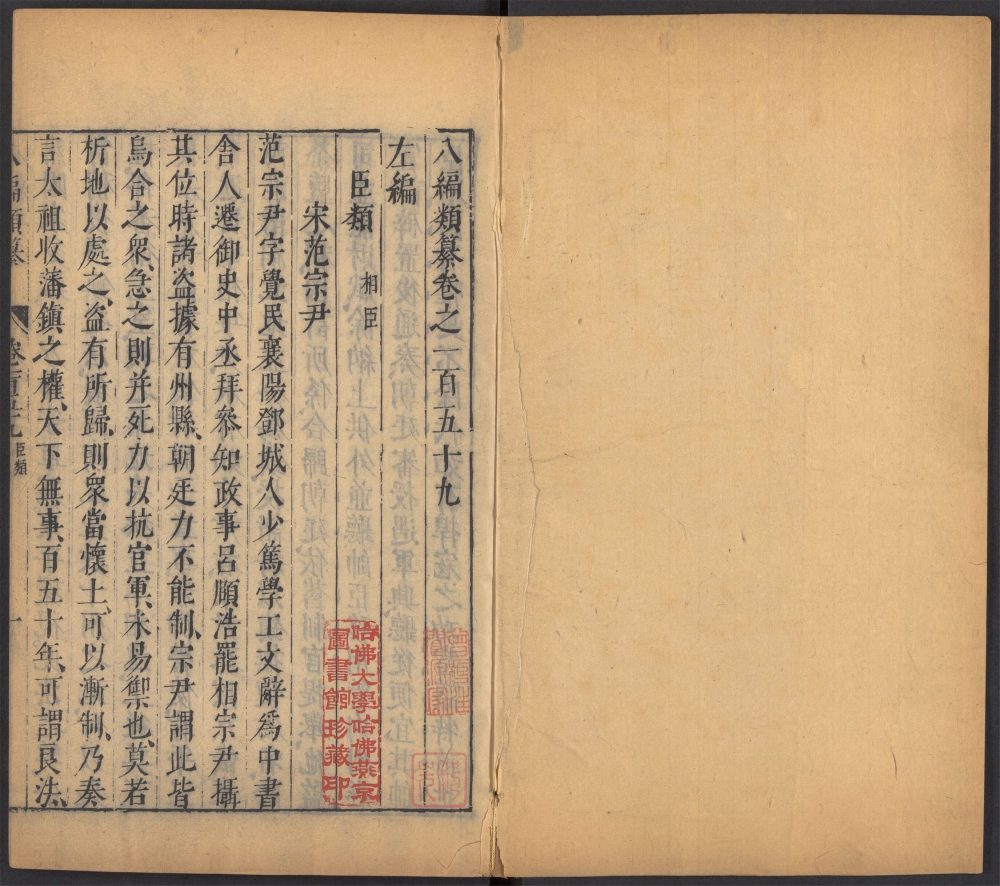 八編類纂卷之一百五十九
左編
臣類 相臣
宋范宗尹
范宗尹字覺民襄陽鄧城人少篤學工文辭爲中書
舍人遷御史中丞拜參知政事呂頤浩罷相宗尹攝
其位時諸盜據有州縣、朝廷力不能制、宗尹謂此皆
烏合之衆、急之則并死力以抗官軍、未易禦也、莫若
析地以處之、盜有所歸、則衆當懷土、可以漸制、乃奏
言太祖收藩鎮之權、天下無事、百五十年、可謂良法、
八編類纂 卷一百五十九 臣類 一
哈佛大學哈佛燕京
圖書館珍藏印